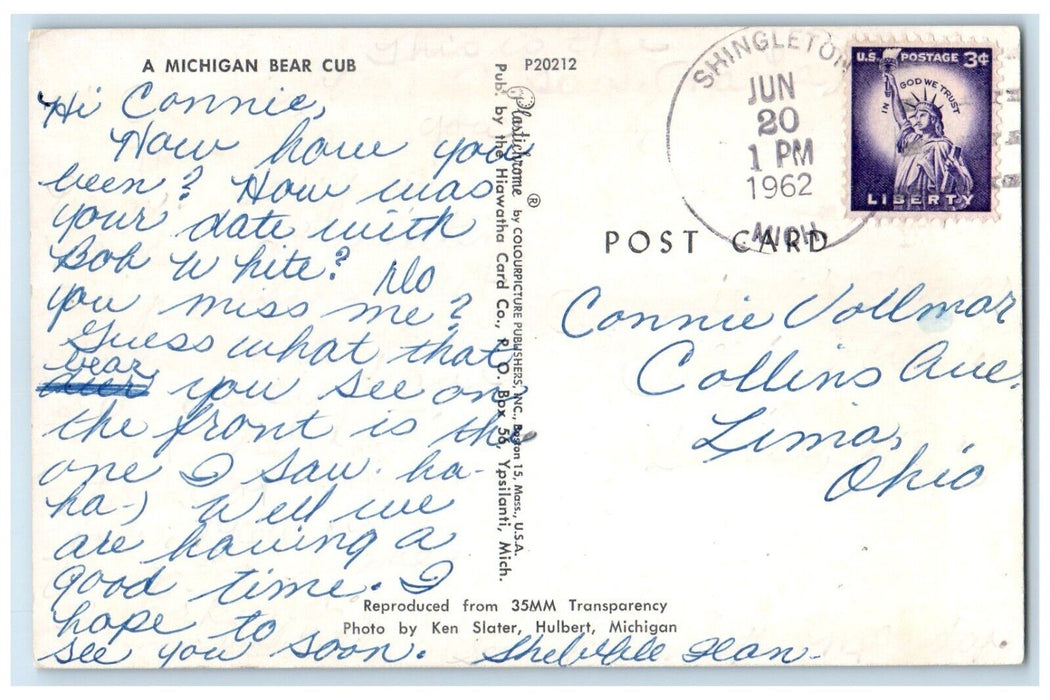 A MICHIGAN BEAR CUB
Hi Connie,
How have you
been? How was
your date with
Bob White? Do
you miss me?
Guess what that
bear
you see on
the front is the
one I saw. ha-
ha-) Well we
are having a
good time. I
hope to
see you soon.
Jean-
P20212
Plastichrome ® by COLOURPICTURE PUBLISHERS, INC., Boston 15, Mass., U.S.A.
Pub. by the Hiawatha Card Co., P. O. Box 56, Ypsilanti, Mich.
Reproduced from 35MM Transparency
Photo by Ken Slater, Hulbert, Michigan
SHINGLETON
JUN
20
1 PM
1962
MICH
U.S. POSTAGE 3¢
IN GOD WE TRUST
LIBERTY
POST CARD
Connie Vollmar
Collins Ave.
Lima,
Ohio